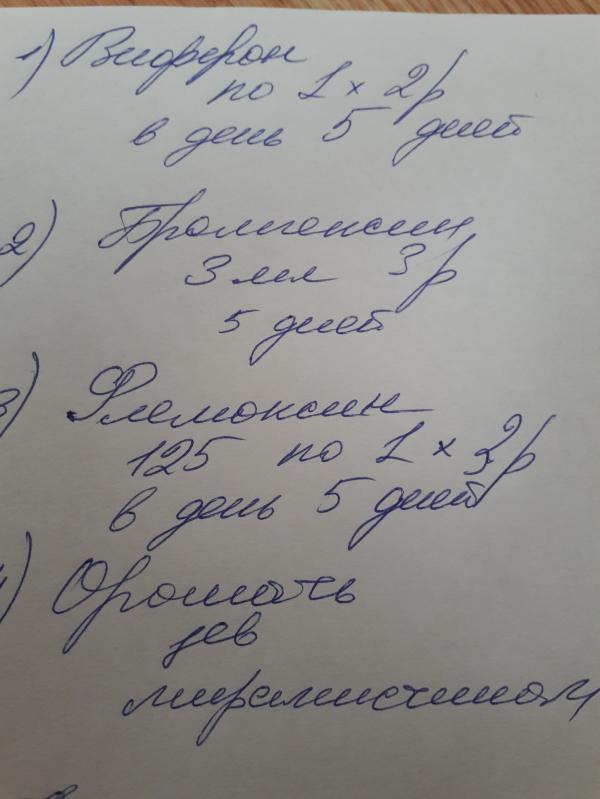 1) Виферон
по 1 х 2 р
в день 5 дней
2) Бромгексин
3 мл 3 р
5 дней
3) Флемоксин
125 по 1 х 2 р
в день 5 дней
4) Орошать
зев
мирамистином